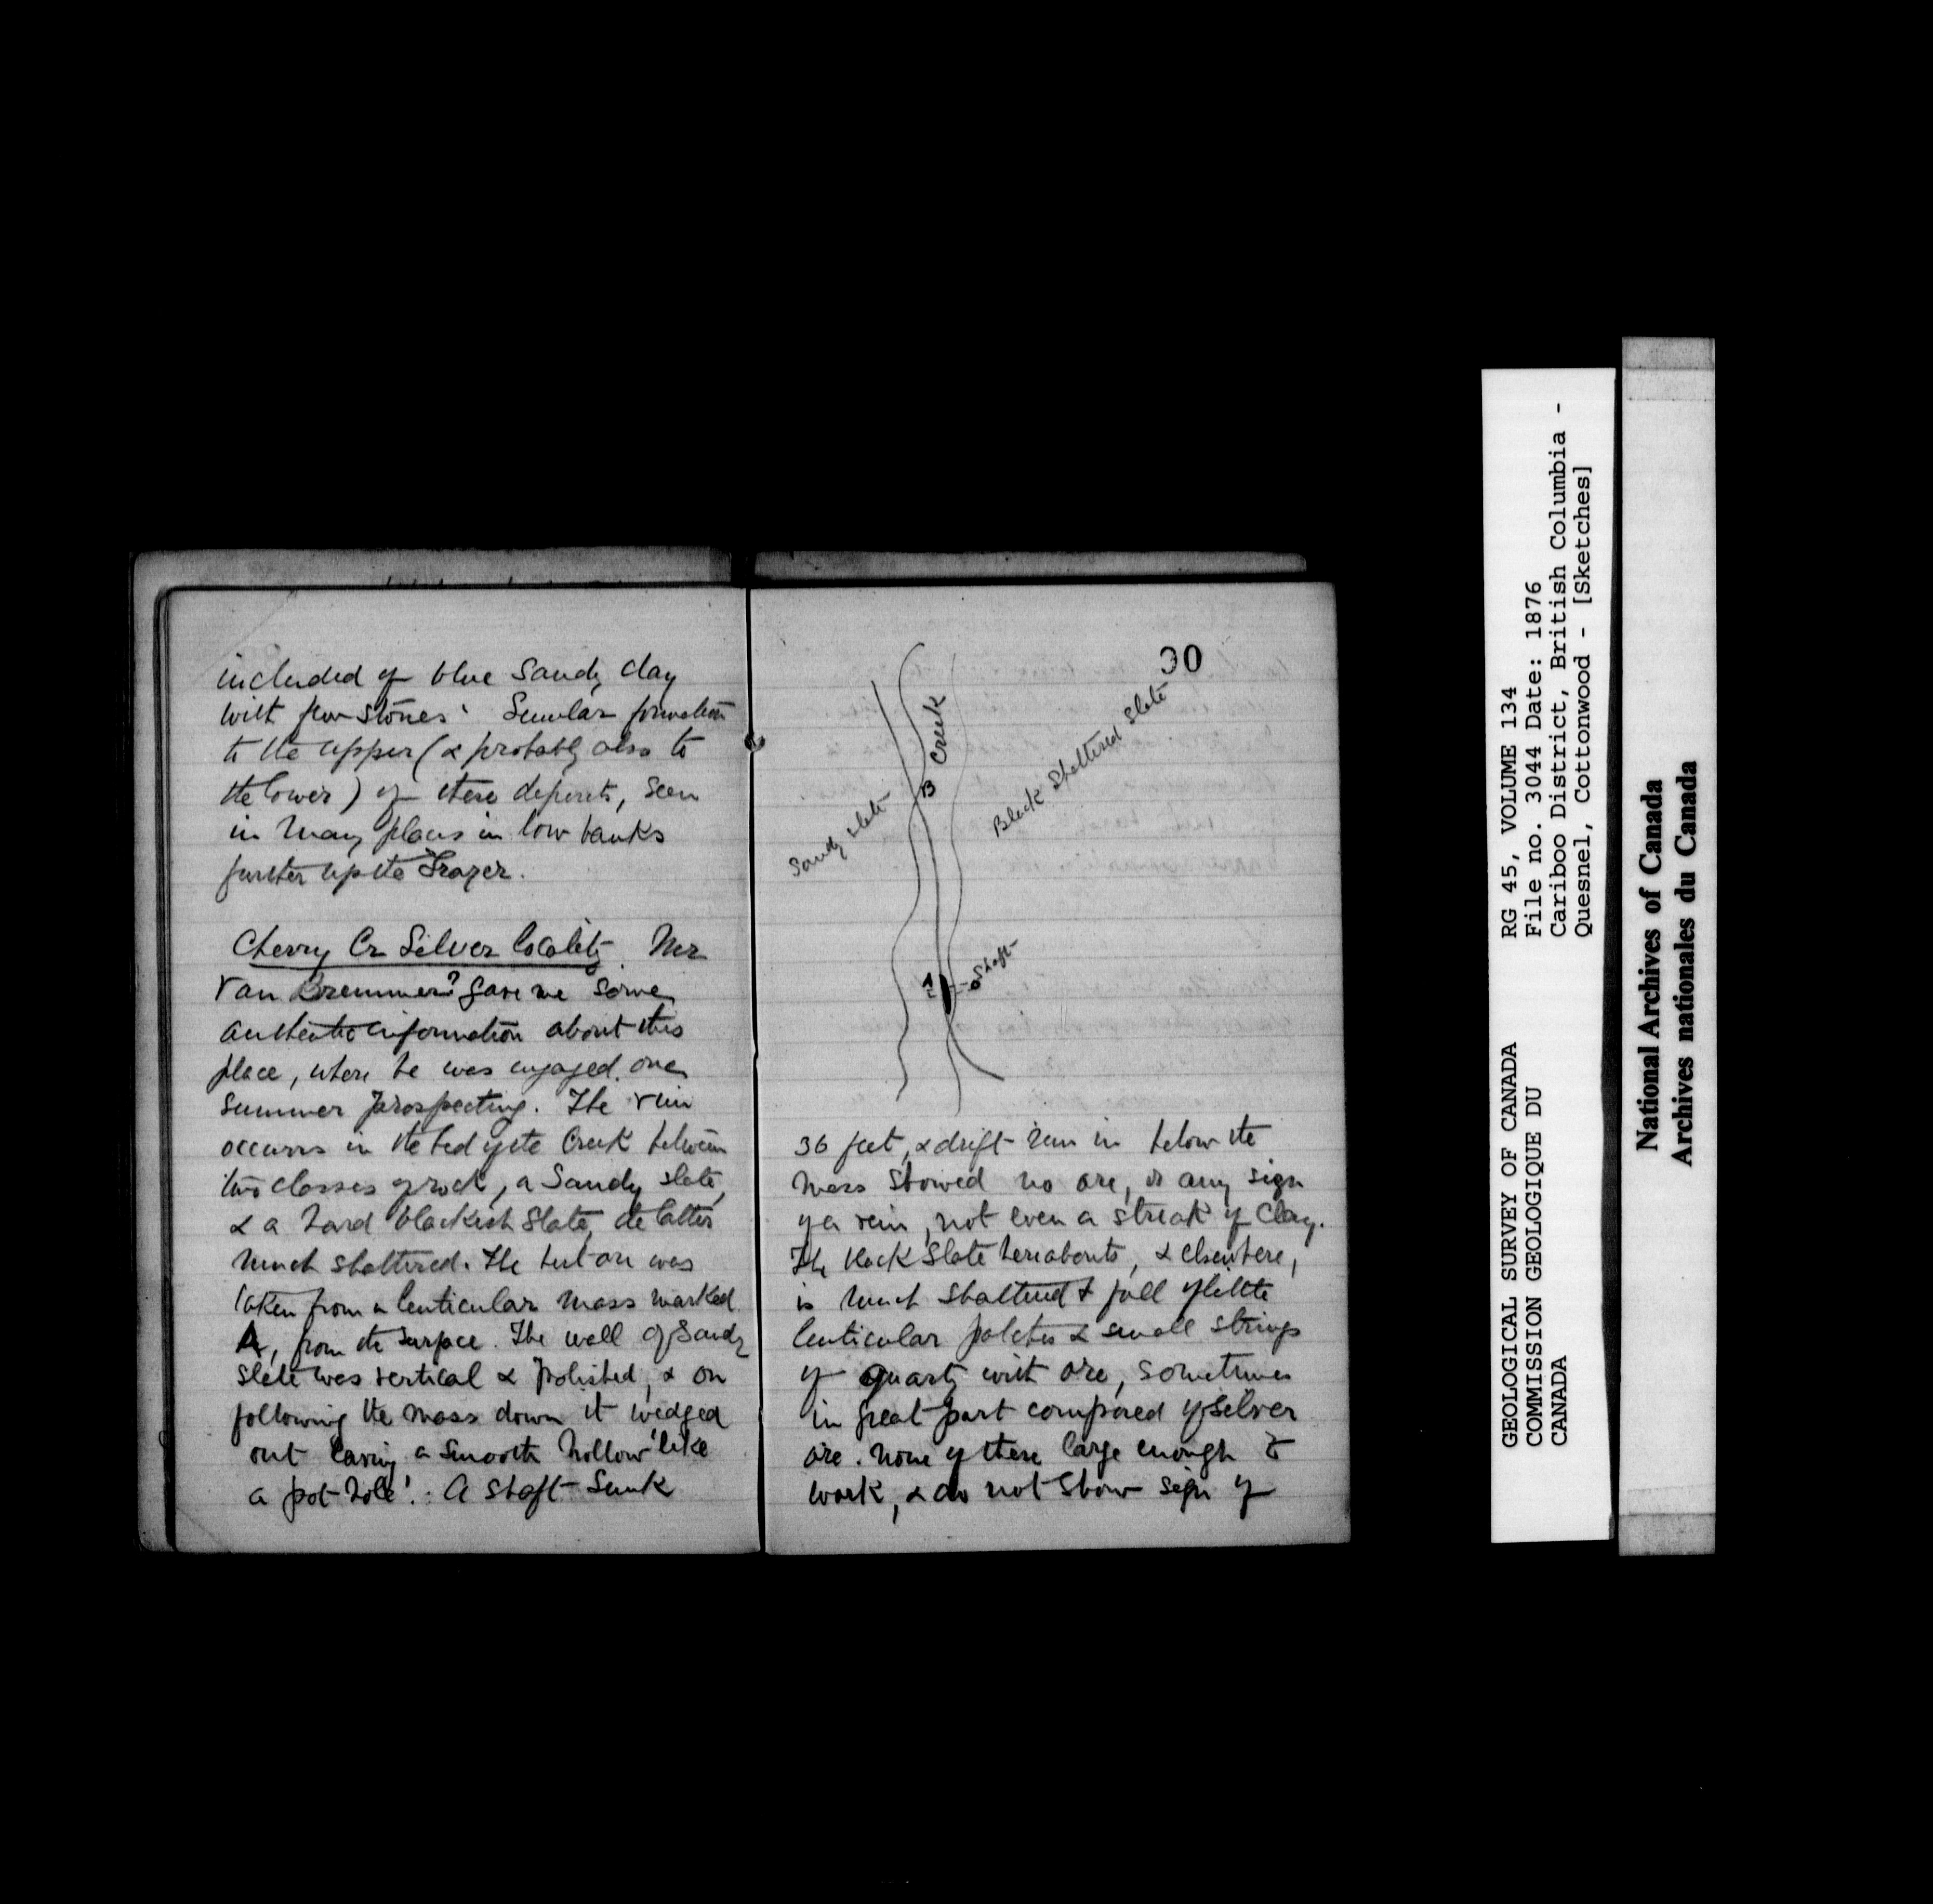 included of blue Sandy clay
with few stones. Similar formation
to the upper (& probably also to
the lower) of these deposits, seen
in many places in low banks
further up the Frazer.
Cherry Cr Silver locality Mr
Van Bremmer? gave me some
authentic information about this
place, where he was engaged one
summer prospecting. The vein
occurs in the bed of the Creek between
two classes of rock, a Sandy slate,
& a hard blackish slate, the latter
much shattered. The best ore was
taken from a lenticular mass marked
A, from the surface. The wall of Sandy
Slate was vertical & polished, & on
following the mass down it wedged
out leaving a smooth hollow 'like
a pot-hole'. A shaft sunk
30
Sandy slate
B Creek
Black Shattered Slate
A
Shaft
36 feet, & drift run in below the
mass showed no ore, or any sign
of a vein, not even a streak of clay.
The black slate hereabouts, & elsewhere,
is much shattered & full of little
lenticular patches & small strings
of quartz with ore, sometimes
in great part composed of silver
ore. None of these large enough to
work, & do not show sign of
GEOLOGICAL SURVEY OF CANADA
COMMISSION GEOLOGIQUE DU
CANADA
RG 45, VOLUME 134
File no. 3044 Date: 1876
Cariboo District, British Columbia -
Quesnel, Cottonwood - [Sketches]
National Archives of Canada
Archives nationales du Canada